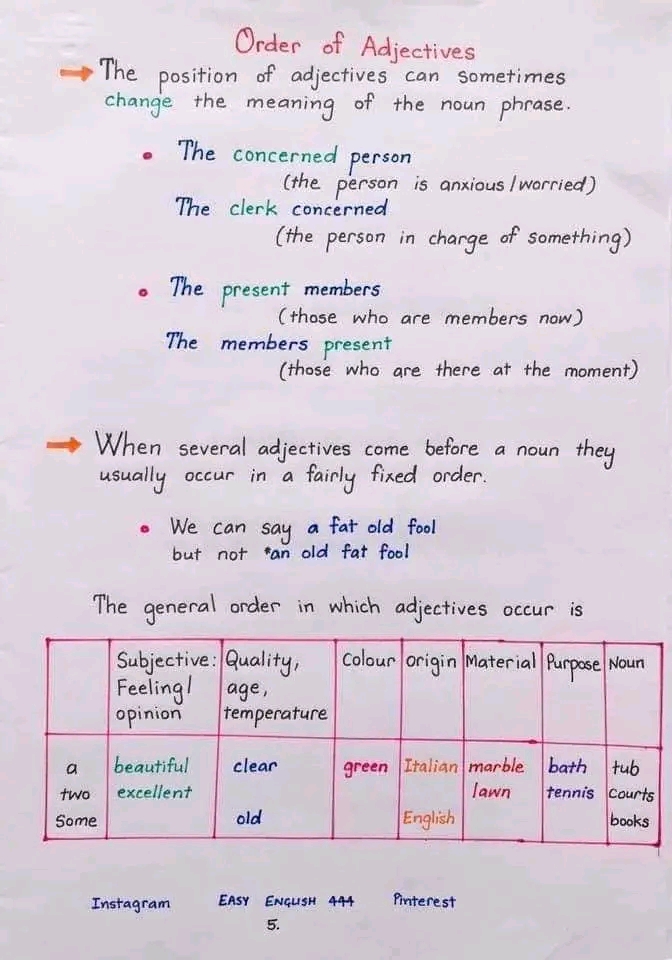 Order of Adjectives
The position of adjectives can sometimes
change the meaning of the noun phrase.
The concerned person
(the person is anxious/worried)
The clerk concerned
(the person in charge of something)
The present members
(those who are members now)
The members present
(those who are there at the moment)
When several adjectives come before a noun they
usually occur in a fairly fixed order.
We can say a fat old fool
but not *an old fat fool
The general order in which adjectives occur is
Subjective: Quality, Colour origin Material Purpose Noun
Feeling/ age,
opinion temperature
a beautiful clear green Italian marble bath tub
two excellent lawn tennis courts
Some old English books
Instagram EASY ENGLISH 444 Pinterest
5.